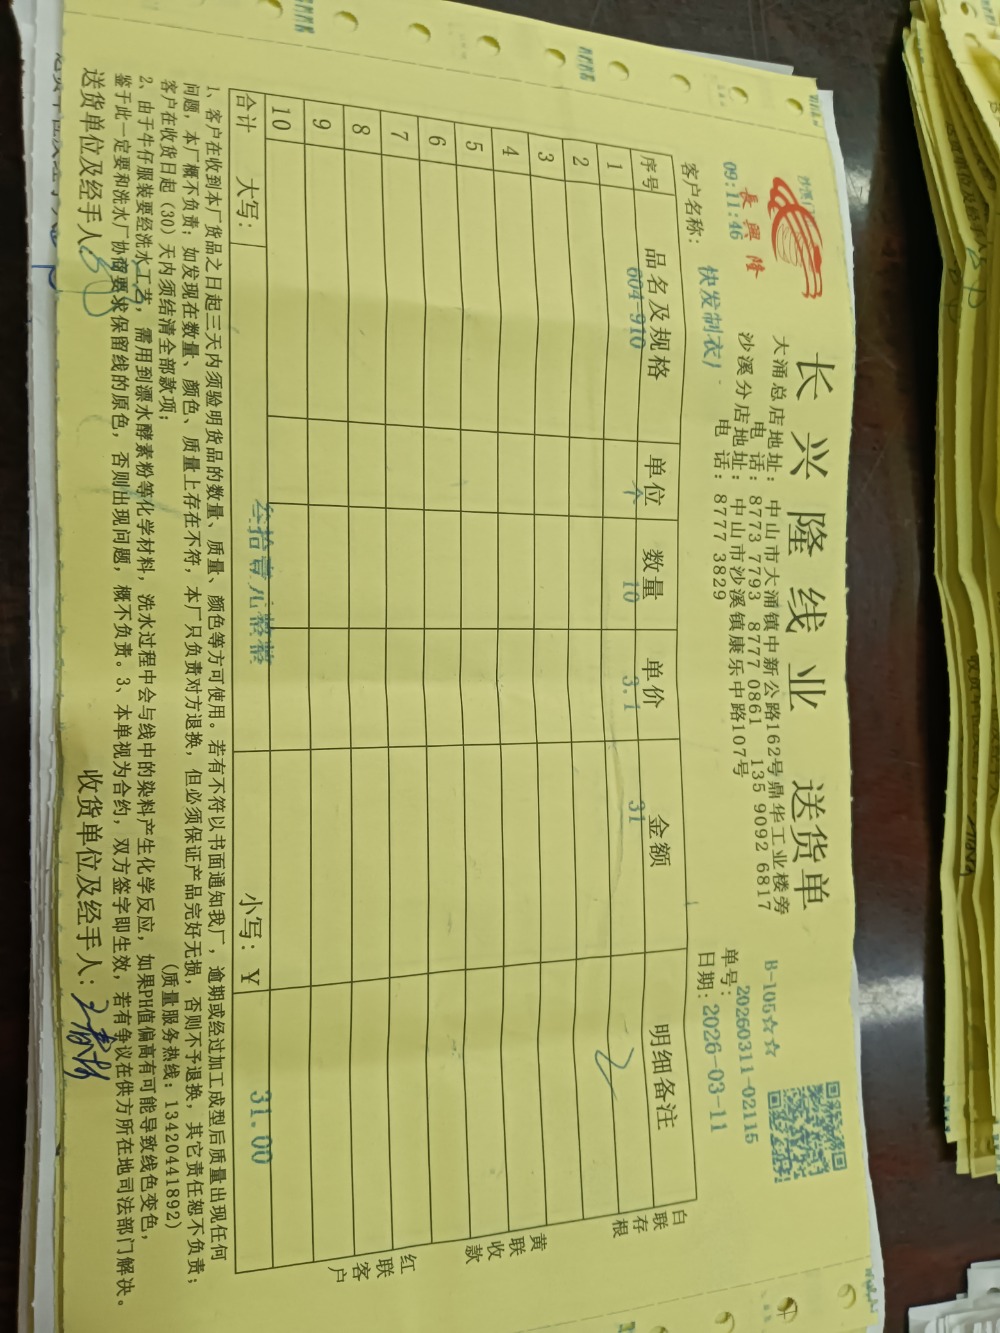 长兴隆线业 送货单
長興隆
09:11:46
大涌总店地址：中山市大涌镇中新公路162号鼎华工业楼旁
电 话：8773 7793 8777 0861 135 9092 6817
沙溪分店地址：中山市沙溪镇康乐中路107号
电 话：8777 3829
B-105☆☆
单号：20260311-02115
客户名称：快发制衣厂
日期：2026-03-11
序号 品名及规格 单位 数量 单价 金额 明细备注
1 604-910 个 10 3.1 31
2
3
4
5
6
7
8
9
10
合计 大写：叁拾壹元整整 小写：￥ 31.00
白联存根
黄联收款
红联客户
1、客户在收到本厂货品之日起三天内须验明货品的数量、质量、颜色等方可使用。若有不符以书面通知我厂，逾期或经过加工成型后质量出现任何
问题，本厂概不负责；如发现在数量、颜色、质量上存在不符，本厂只负责对方退换，但必须保证产品完好无损，否则不予退换，其它责任恕不负责；
客户在收货日起（30）天内须结清全部款项；
（质量服务热线：13420441892）
2、由于牛仔服装要经洗水工艺，需用到漂水酵素粉等化学材料，洗水过程中会与线中的染料产生化学反应，如果PH值偏高有可能导致线色变色，
鉴于此一定要和洗水厂协商要求保留线的原色，否则出现问题，概不负责。3、本单视为合约，双方签字即生效，若有争议在供方所在地司法部门解决。
送货单位及经手人：
收货单位及经手人：